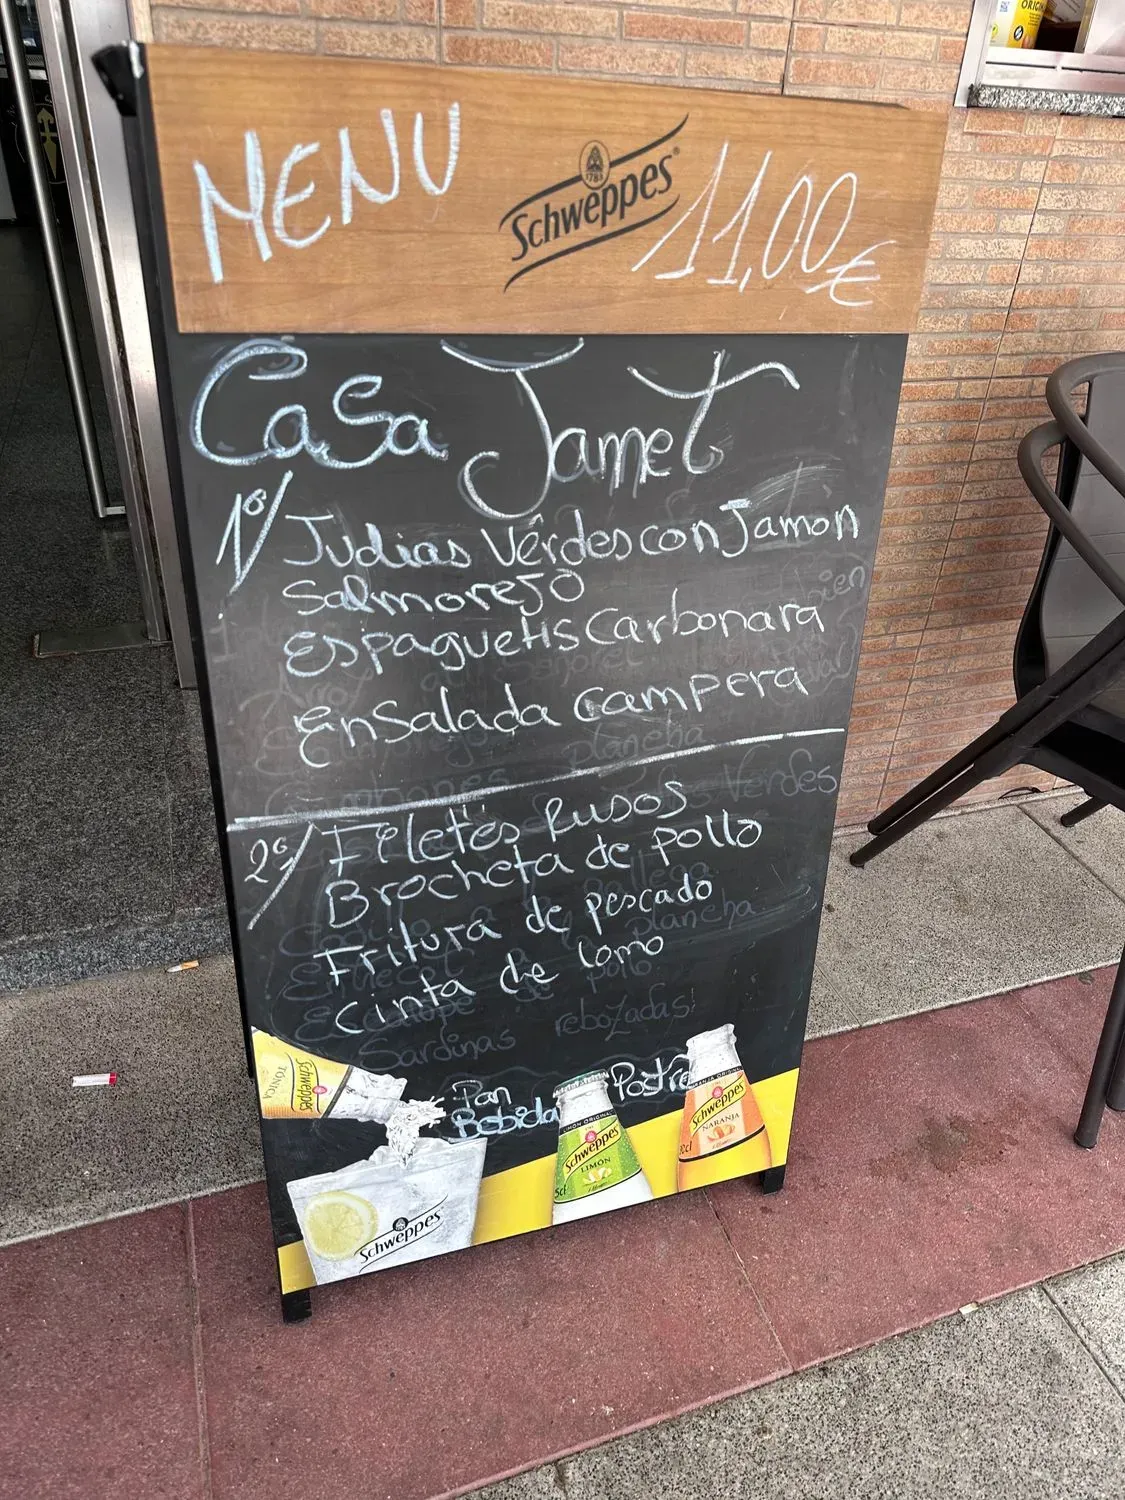 MENU Schweppes 11,00€
1783
Casa Jamet
1º/ Judias Verdes con Jamon
Salmorejo
Espaguetis Carbonara
Ensalada campera
plancha
Verdes
2º/ Filetes Rusos
Brocheta de pollo
Fritura de pescado
Cinta de lomo
plancha
pollo
Sardinas rebozadas
Pan Postre
Bebida
Schweppes
TÓNICA
Schweppes
LIMÓN
Schweppes
NARANJA
Schweppes